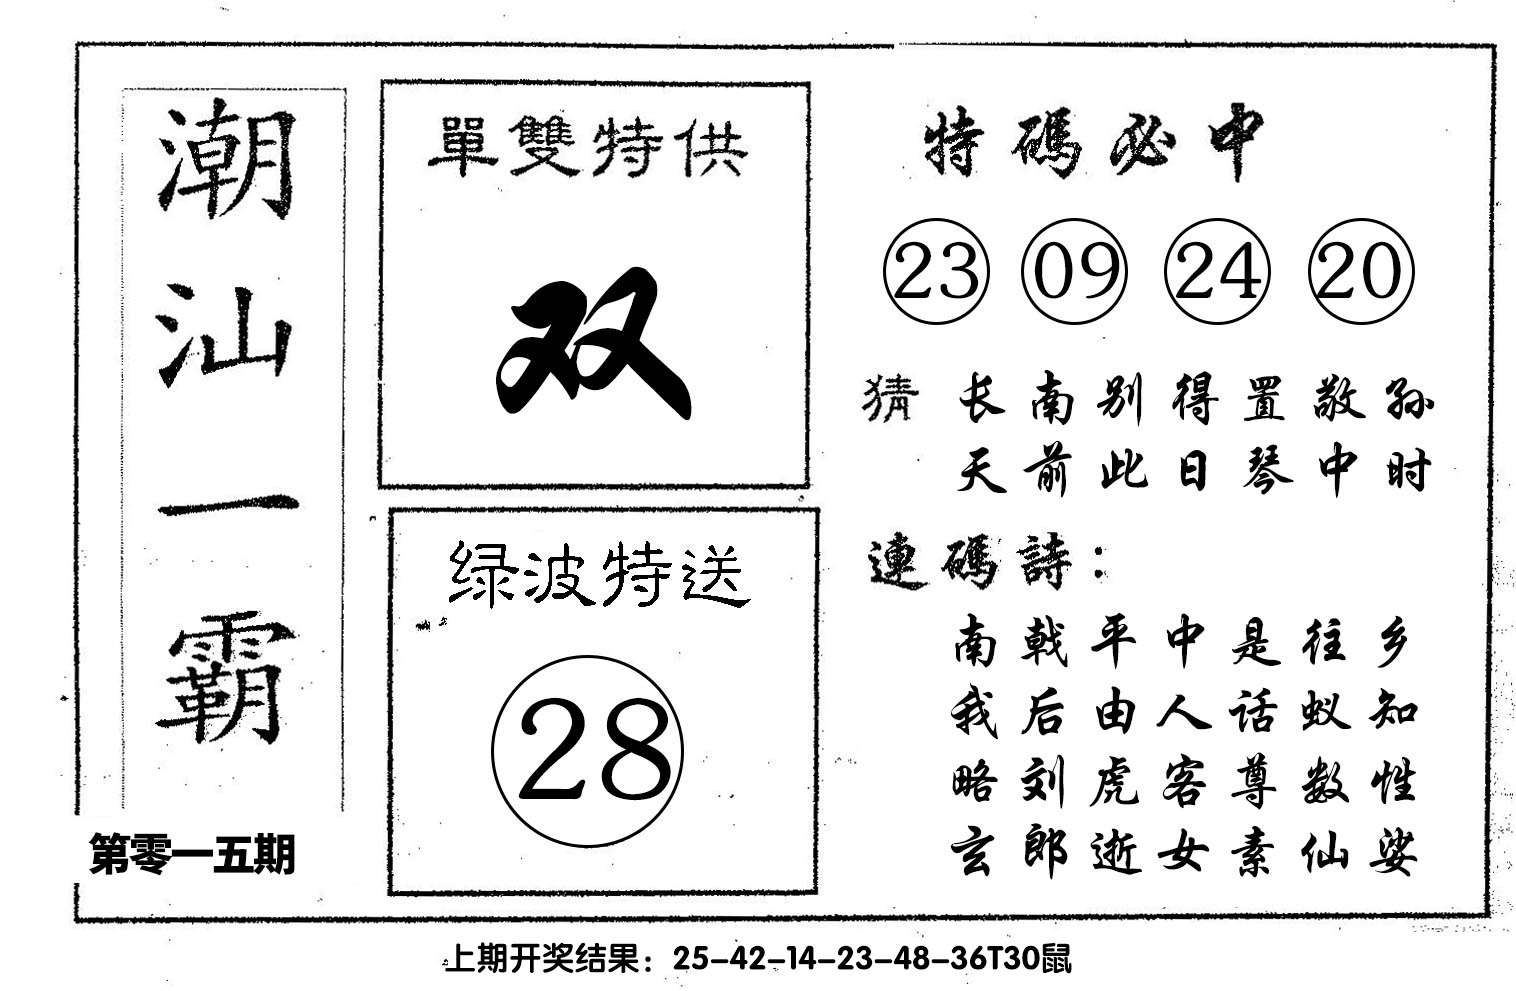 潮汕一霸
第零一五期
單雙特供
双
绿波特送
28
特碼必中
23 09 24 20
猜 长南别得置敬孙
天前此日琴中时
連碼詩：
南戟平中是往乡
我后由人话蚁知
略刘虎客尊数性
玄郎逝女素仙娑
上期开奖结果：25-42-14-23-48-36T30鼠